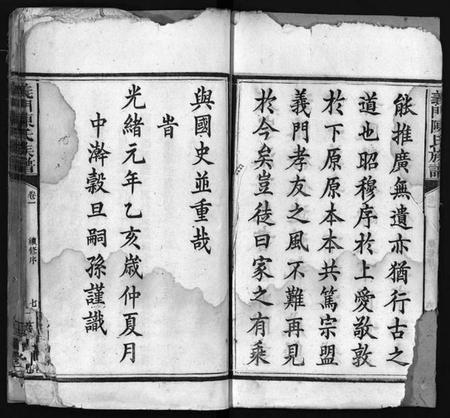 義門陳氏族譜
能推廣無遺亦猶行古之
道也昭穆序於上愛敬敦
於下原原本本共篤宗盟
義門孝友之風不難再見
於今矣豈徒曰家之有乘
與國史並重哉
旹
光緒元年乙亥歲仲夏月
中澣穀旦嗣孫謹識
義門陳氏族譜
卷一
續修序
七